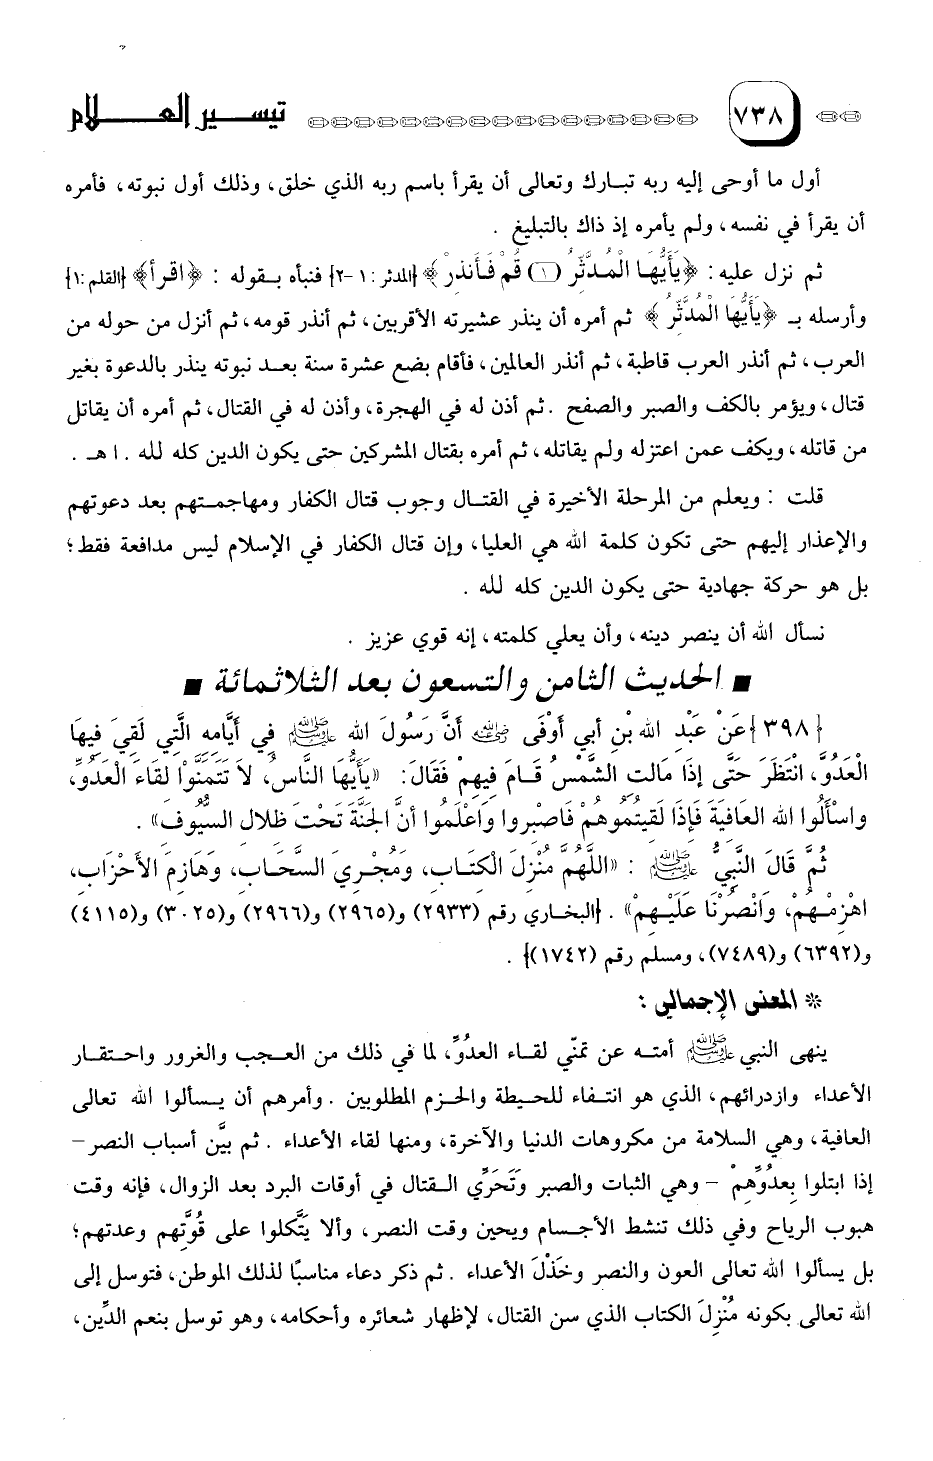 ٧٣٨ تيسير العلام
أول ما أوحى إليه ربه تبارك وتعالى أن يقرأ باسم ربه الذي خلق، وذلك أول نبوته، فأمره
أن يقرأ في نفسه، ولم يأمره إذ ذاك بالتبليغ .
ثم نزل عليه: ﴿يَأَيُّهَا الْمُدَّثِّرُ (١) قُمْ فَأَنذِرْ﴾ {المدثر: ١-٢} فنبأه بقوله : ﴿اقرأ﴾ {القلم: ١}
وأرسله بـ ﴿يَأَيُّهَا الْمُدَّثِّرُ﴾ ثم أمره أن ينذر عشيرته الأقربين، ثم أنذر قومه، ثم أنزل من حوله من
العرب، ثم أنذر العرب قاطبة، ثم أنذر العالمين، فأقام بضع عشرة سنة بعد نبوته ينذر بالدعوة بغير
قتال، ويؤمر بالكف والصبر والصفح . ثم أذن له في الهجرة، وأذن له في القتال، ثم أمره أن يقاتل
من قاتله، ويكف عمن اعتزله ولم يقاتله، ثم أمره بقتال المشركين حتى يكون الدين كله لله . اهـ .
قلت : ويعلم من المرحلة الأخيرة في القتال وجوب قتال الكفار ومهاجمتهم بعد دعوتهم
والإعذار إليهم حتى تكون كلمة الله هي العليا، وإن قتال الكفار في الإسلام ليس مدافعة فقط؛
بل هو حركة جهادية حتى يكون الدين كله لله .
نسأل الله أن ينصر دينه، وأن يعلي كلمته، إنه قوي عزيز .
■ الحديث الثامن والتسعون بعد الثلاثمائة ■
{٣٩٨} عَنْ عَبْدِ اللهِ بْنِ أبي أَوْفَى رضي الله عنه أَنَّ رَسُولَ اللهِ ﷺ فِي أَيَّامِهِ الَّتِي لَقِيَ فِيهَا
الْعَدُوَّ، انْتَظَرَ حَتَّى إِذَا مَالَتِ الشَّمْسُ قَامَ فِيهِمْ فَقَالَ: «يَأَيُّهَا النَّاسُ، لاَ تَتَمَنَّوْا لِقَاءَ الْعَدُوِّ،
وَاسْأَلُوا اللهَ الْعَافِيَةَ فَإِذَا لَقِيتُمُوهُمْ فَاصْبِرُوا وَاعْلَمُوا أَنَّ الْجَنَّةَ تَحْتَ ظِلاَلِ السُّيُوفِ» .
ثُمَّ قَالَ النَّبِيُّ ﷺ : «اللَّهُمَّ مُنْزِلَ الْكِتَابِ، وَمُجْرِيَ السَّحَابِ، وَهَازِمَ الأَحْزَابِ،
اهْزِمْهُمْ، وَانْصُرْنَا عَلَيْهِمْ» . {البخاري رقم (٢٩٣٣) و(٢٩٦٥) و(٢٩٦٦) و(٣٠٢٥) و(٤١١٥)
و(٦٣٩٢) و(٧٤٨٩)، ومسلم رقم (١٧٤٢)} .
* المعنى الإجمالي :
ينهى النبي ﷺ أمته عن تمنّي لقاء العدُوِّ، لما في ذلك من العجب والغرور واحتقار
الأعداء وازدرائهم، الذي هو انتفاء للحيطة والحزم المطلوبين . وأمرهم أن يسألوا الله تعالى
العافية، وهي السلامة من مكروهات الدنيا والآخرة، ومنها لقاء الأعداء . ثم بيَّن أسباب النصر –
إذا ابتلوا بِعدُوِّهِمْ – وهي الثبات والصبر وتَحَرِّي القتال في أوقات البرد بعد الزوال، فإنه وقت
هبوب الرياح وفي ذلك تنشط الأجسام ويحين وقت النصر، وألا يَتَّكلوا على قُوَّتهم وعدتهم؛
بل يسألوا الله تعالى العون والنصر وخَذْلَ الأعداء . ثم ذكر دعاء مناسبًا لذلك الموطن، فتوسل إلى
الله تعالى بكونه مُنْزِلَ الكتاب الذي سن القتال، لإظهار شعائره وأحكامه، وهو توسل بنعم الدِّين،